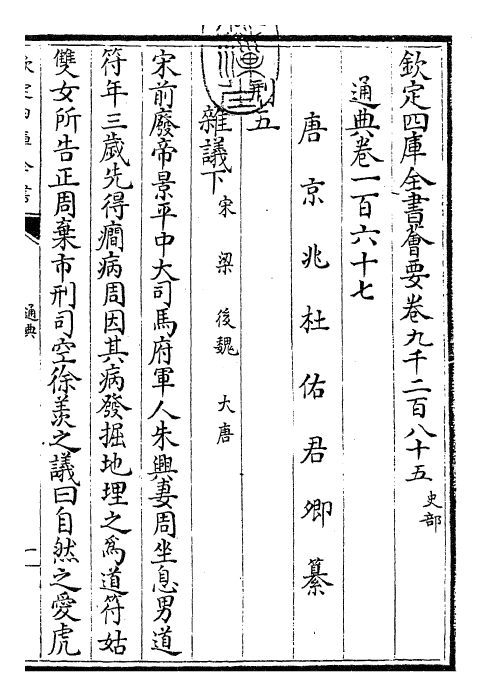 欽定四庫全書薈要卷九千二百八十五 史部
通典卷一百六十七
唐京兆杜佑君卿纂
刑五
雜議下 宋 梁 後魏 大唐
宋前廢帝景平中大司馬府軍人朱興妻周坐息男道
符年三歲先得癎病周因其病發掘地埋之為道符姑
雙女所告正周棄市刑司空徐羨之議曰自然之愛虎
通典
一